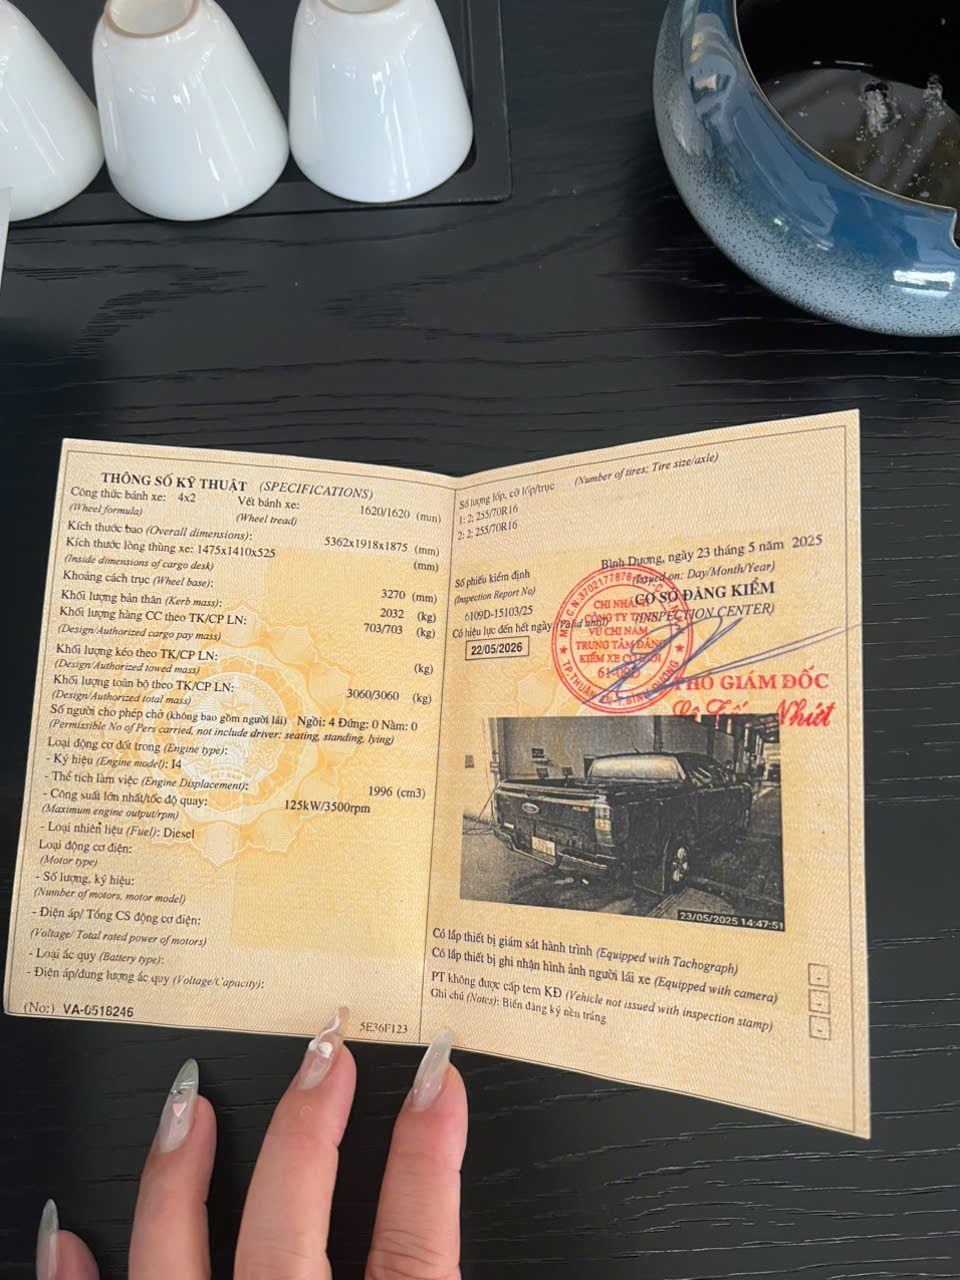 THÔNG SỐ KỸ THUẬT (SPECIFICATIONS)
Công thức bánh xe: 4x2 Vết bánh xe: 1620/1620 (mm)
(Wheel formula) (Wheel tread)
Kích thước bao (Overall dimensions): 5362x1918x1875 (mm)
Kích thước lòng thùng xe: 1475x1410x525 (mm)
(Inside dimensions of cargo desk)
Khoảng cách trục (Wheel base): 3270 (mm)
Khối lượng bản thân (Kerb mass): 2032 (kg)
Khối lượng hàng CC theo TK/CP LN: 703/703 (kg)
(Design/Authorized cargo pay mass)
Khối lượng kéo theo TK/CP LN: (kg)
(Design/Authorized towed mass)
Khối lượng toàn bộ theo TK/CP LN: 3060/3060 (kg)
(Design/Authorized total mass)
Số người cho phép chở (không bao gồm người lái) Ngồi: 4 Đứng: 0 Nằm: 0
(Permissible No of Pers carried, not include driver: seating, standing, lying)
Loại động cơ đốt trong (Engine type):
- Ký hiệu (Engine model): I4
- Thể tích làm việc (Engine Displacement): 1996 (cm3)
- Công suất lớn nhất/tốc độ quay: 125kW/3500rpm
(Maximum engine output/rpm)
- Loại nhiên liệu (Fuel): Diesel
Loại động cơ điện:
(Motor type)
- Số lượng, ký hiệu:
(Number of motors, motor model)
- Điện áp/ Tổng CS động cơ điện:
(Voltage/ Total rated power of motors)
- Loại ắc quy (Battery type):
- Điện áp/dung lượng ắc quy (Voltage/Capacity):
(No:) VA-0518246
5E36F123
Số lượng lốp, cỡ lốp/trục (Number of tires; Tire size/axle)
1: 2; 255/70R16
2: 2; 255/70R16
Bình Dương, ngày 23 tháng 5 năm 2025
(Issued on: Day/Month/Year)
Số phiếu kiểm định
(Inspection Report No)
CƠ SỞ ĐĂNG KIỂM
(INSPECTION CENTER)
6109D-15103/25
Có hiệu lực đến hết ngày (Valid until)
22/05/2026
CHI NHÁNH
CÔNG TY TNHH
VŨ CHÍ NAM
TRUNG TÂM ĐĂNG
KIỂM XE CƠ GIỚI
PHÓ GIÁM ĐỐC
23/05/2025 14:47:51
Có lắp thiết bị giám sát hành trình (Equipped with Tachograph) -
Có lắp thiết bị ghi nhận hình ảnh người lái xe (Equipped with camera) -
PT không được cấp tem KĐ (Vehicle not issued with inspection stamp) -
Ghi chú (Notes): Biển đăng ký nền trắng